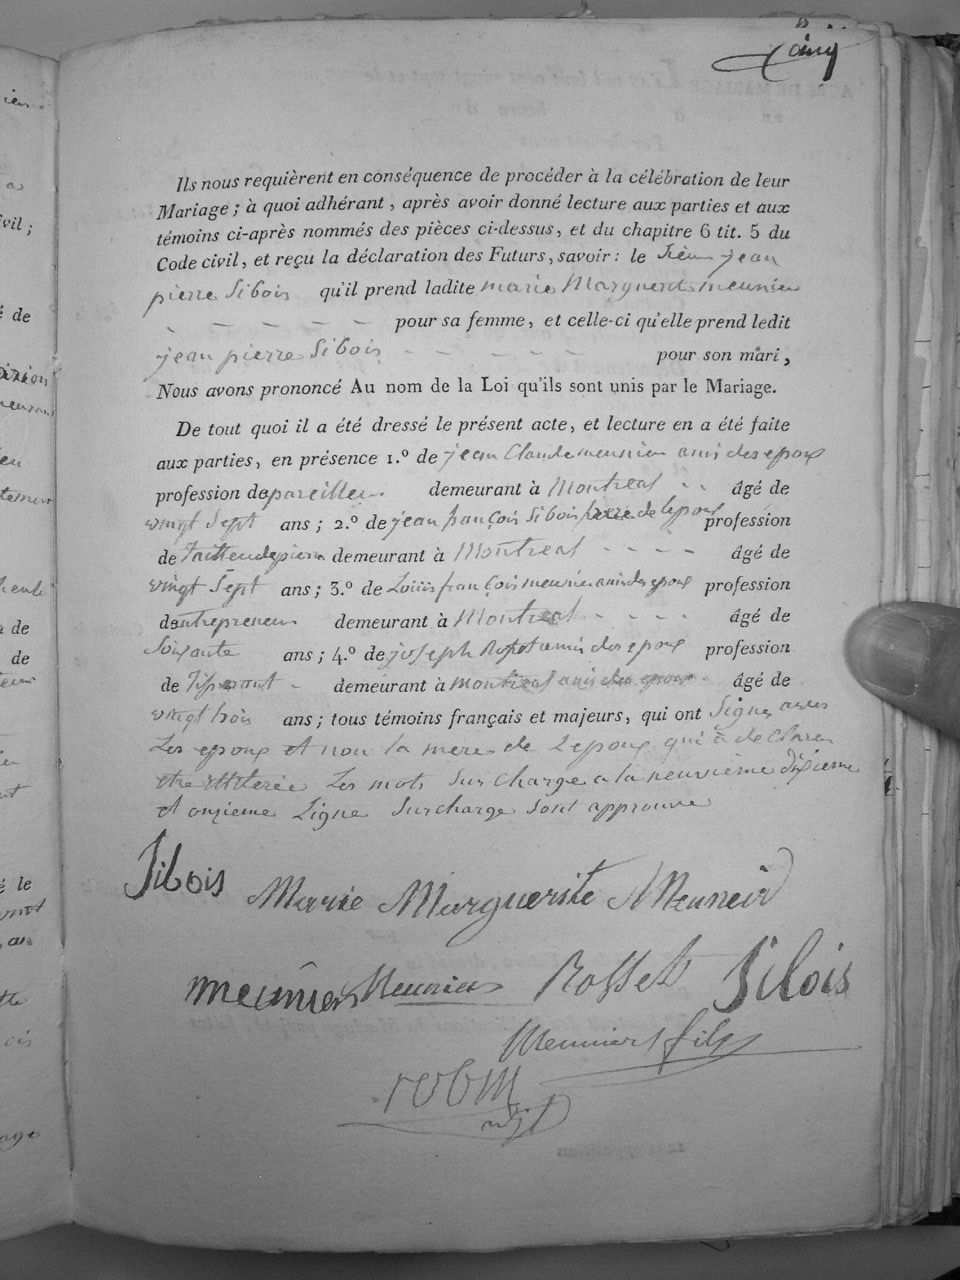 Ils nous requièrent en conséquence de procéder à la célébration de leur
Mariage ; à quoi adhérant, après avoir donné lecture aux parties et aux
témoins ci-après nommés des pièces ci-dessus, et du chapitre 6 tit. 5 du
Code civil, et reçu la déclaration des Futurs, savoir : le Sieur jean
pierre Sibois qu'il prend ladite marie Marguerite meunier
- - - - - pour sa femme, et celle-ci qu'elle prend ledit
jean pierre Sibois - - - - - pour son mari,
Nous avons prononcé Au nom de la Loi qu'ils sont unis par le Mariage.
De tout quoi il a été dressé le présent acte, et lecture en a été faite
aux parties, en présence 1.º de jean Claude meunier amis des epoux
profession de demeurant à Montreal - - âgé de
vingt Sept ans ; 2.º de jean françois Sibois frere de lepoux profession
de demeurant à Montreal - - - - âgé de
vingt Sept ans ; 3.º de Louis françois meunier amis des epoux profession
dentrepreneur demeurant à Montreal - - - - âgé de
Soixante ans ; 4.º de joseph Rosset amis des epoux profession
de Tisserant - demeurant à montreal amis des epoux - âgé de
vingt trois ans ; tous témoins français et majeurs, qui ont Signe avec
Les epoux et non la mere de Lepoux qui a declare
etre Les mots Sur charge a la neuvieme dixieme
et onzieme Ligne Surcharge Sont approuve
Sibois Marie Marguerite Meunier
meunier Meunier Rosset Sibois
Meunier fils